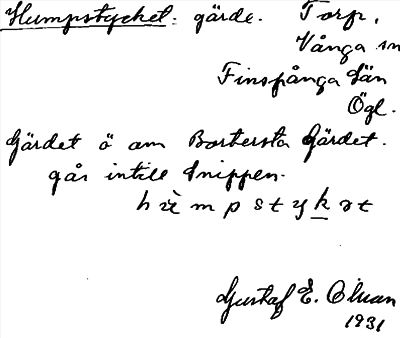 Humpstycket: gärde. Torp,
Vånga sn
Finspånga län
Ögl.
Gärdet ö om Bortersta Gärdet.
går intill Snippen.
h m p s t y k ə t
Gustaf E. Olman
1931